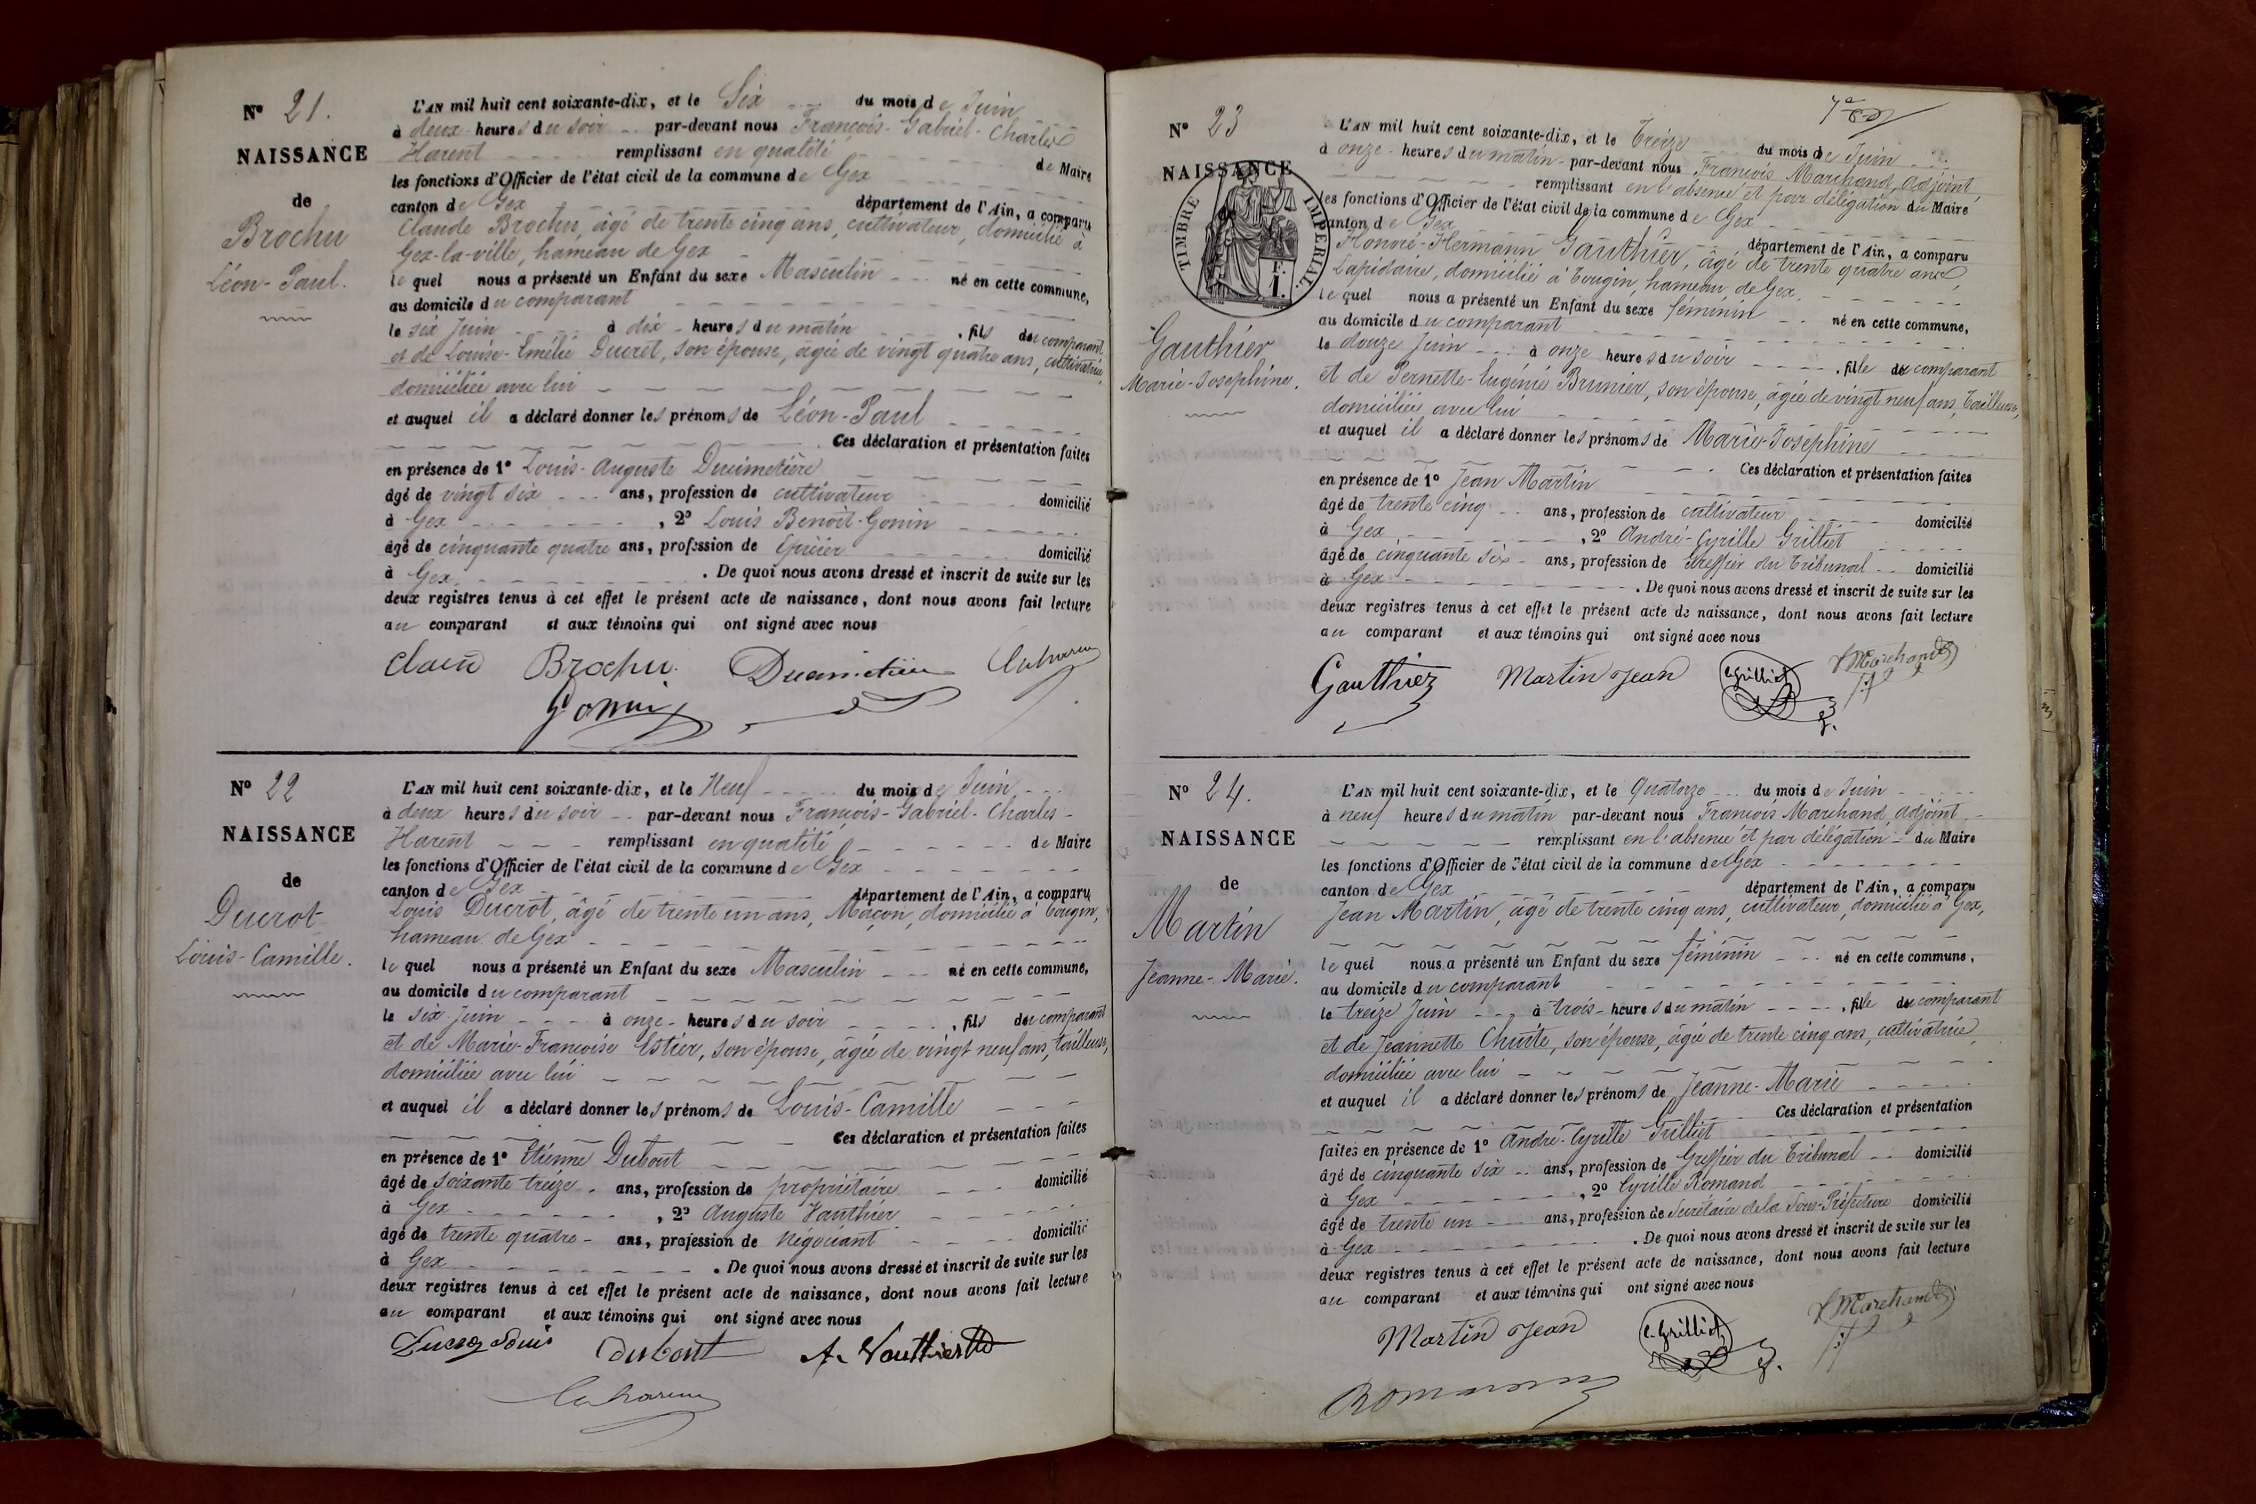 N° 21.
NAISSANCE
de
Brochu
Léon-Paul.
L'AN mil huit cent soixante-dix, et le Six du mois de Juin
à deux heures du soir par-devant nous François-Gabriel-Charles
Harent remplissant en qualité de Maire
les fonctions d'Officier de l'état civil de la commune de Gex
canton de Gex département de l'Ain, a comparu
Claude Brochu, âgé de trente cinq ans, cultivateur, domicilié à
Gex-la-ville, hameau de Gex
le quel nous a présenté un Enfant du sexe Masculin né en cette commune,
au domicile du comparant
le six Juin à dix heures du matin, fils du comparant
et de Louise-Emélie Ducret, son épouse, âgée de vingt quatre ans, cultivatrice,
domiciliée avec lui
et auquel il a déclaré donner les prénoms de Léon-Paul
. Ces déclaration et présentation faites
en présence de 1° Louis-Auguste Ducimetière
âgé de vingt six ans, profession de cultivateur domicilié
à Gex, 2° Louis Benoît-Gonin
âgé de cinquante quatre ans, profession de Epicier domicilié
à Gex. De quoi nous avons dressé et inscrit de suite sur les
deux registres tenus à cet effet le présent acte de naissance, dont nous avons fait lecture
au comparant et aux témoins qui ont signé avec nous
Brochu Ducimetière
Gonin
N° 22
NAISSANCE
de
Ducrot
Louis-Camille.
L'AN mil huit cent soixante-dix, et le Neuf du mois de Juin
à deux heures du soir par-devant nous François-Gabriel-Charles-
Harent remplissant en qualité de Maire
les fonctions d'Officier de l'état civil de la commune de Gex
canton de Gex département de l'Ain, a comparu
Louis Ducrot, âgé de trente un ans, Maçon, domicilié à Tougin,
hameau de Gex
le quel nous a présenté un Enfant du sexe Masculin né en cette commune,
au domicile du comparant
le six Juin à onze heures du soir, fils du comparant
et de Marie-Françoise Estier, son épouse, âgée de vingt neuf ans, tailleuse,
domiciliée avec lui
et auquel il a déclaré donner les prénoms de Louis-Camille
Ces déclaration et présentation faites
en présence de 1° Etienne Dubout
âgé de soixante treize ans, profession de propriétaire domicilié
à Gex, 2° Auguste Vauthier
âgé de trente quatre ans, profession de Négociant domicilié
à Gex. De quoi nous avons dressé et inscrit de suite sur les
deux registres tenus à cet effet le présent acte de naissance, dont nous avons fait lecture
au comparant et aux témoins qui ont signé avec nous
Louis Dubout A. Vauthier
N° 23
NAISSANCE
TIMBRE IMPÉRIAL.
F.
1.
Gauthier
Marie-Josephine.
L'AN mil huit cent soixante-dix, et le Treize du mois de Juin
à onze heures du matin par-devant nous François Marchand, adjoint,
remplissant en l'absence et par délégation du Maire
les fonctions d'Officier de l'état civil de la commune de Gex
canton de Gex département de l'Ain, a comparu
Honoré-Hermann Gauthier, âgé de trente quatre ans,
Lapidaire, domicilié à Tougin, hameau de Gex,
le quel nous a présenté un Enfant du sexe féminin né en cette commune,
au domicile du comparant
le douze Juin à onze heures du soir, fille du comparant
et de Pernette-Eugénie Brunier, son épouse, âgée de vingt neuf ans, Tailleuse,
domiciliée avec lui
et auquel il a déclaré donner les prénoms de Marie-Josephine
. Ces déclaration et présentation faites
en présence de 1° Jean Martin
âgé de trente cinq ans, profession de cultivateur domicilié
à Gex, 2° André-Cyrille Grilliet
âgé de cinquante six ans, profession de Greffier du Tribunal domicilié
à Gex. De quoi nous avons dressé et inscrit de suite sur les
deux registres tenus à cet effet le présent acte de naissance, dont nous avons fait lecture
au comparant et aux témoins qui ont signé avec nous
Gauthier Martin Jean C. Grilliet F Marchand
N° 24.
NAISSANCE
de
Martin
Jeanne-Marie.
L'AN mil huit cent soixante-dix, et le Quatorze du mois de Juin
à neuf heures du matin par-devant nous François Marchand, adjoint
remplissant en l'absence et par délégation du Maire
les fonctions d'Officier de l'état civil de la commune de Gex
canton de Gex département de l'Ain, a comparu
Jean Martin, âgé de trente cinq ans, cultivateur, domicilié à Gex,
le quel nous a présenté un Enfant du sexe féminin né en cette commune,
au domicile du comparant
le treize Juin à trois heures du matin, fille du comparant
et de Jeannette Chuite, son épouse, âgée de trente cinq ans, cultivatrice,
domiciliée avec lui
et auquel il a déclaré donner les prénoms de Jeanne-Marie
Ces déclaration et présentation
faites en présence de 1° André-Cyrille Grilliet
âgé de cinquante six ans, profession de Greffier du Tribunal domicilié
à Gex, 2° Cyrille Romand
âgé de trente un ans, profession de Secrétaire de la Sous-Préfecture domicilié
à Gex. De quoi nous avons dressé et inscrit de suite sur les
deux registres tenus à cet effet le présent acte de naissance, dont nous avons fait lecture
au comparant et aux témoins qui ont signé avec nous
Martin Jean C. Grilliet F Marchand
Romand